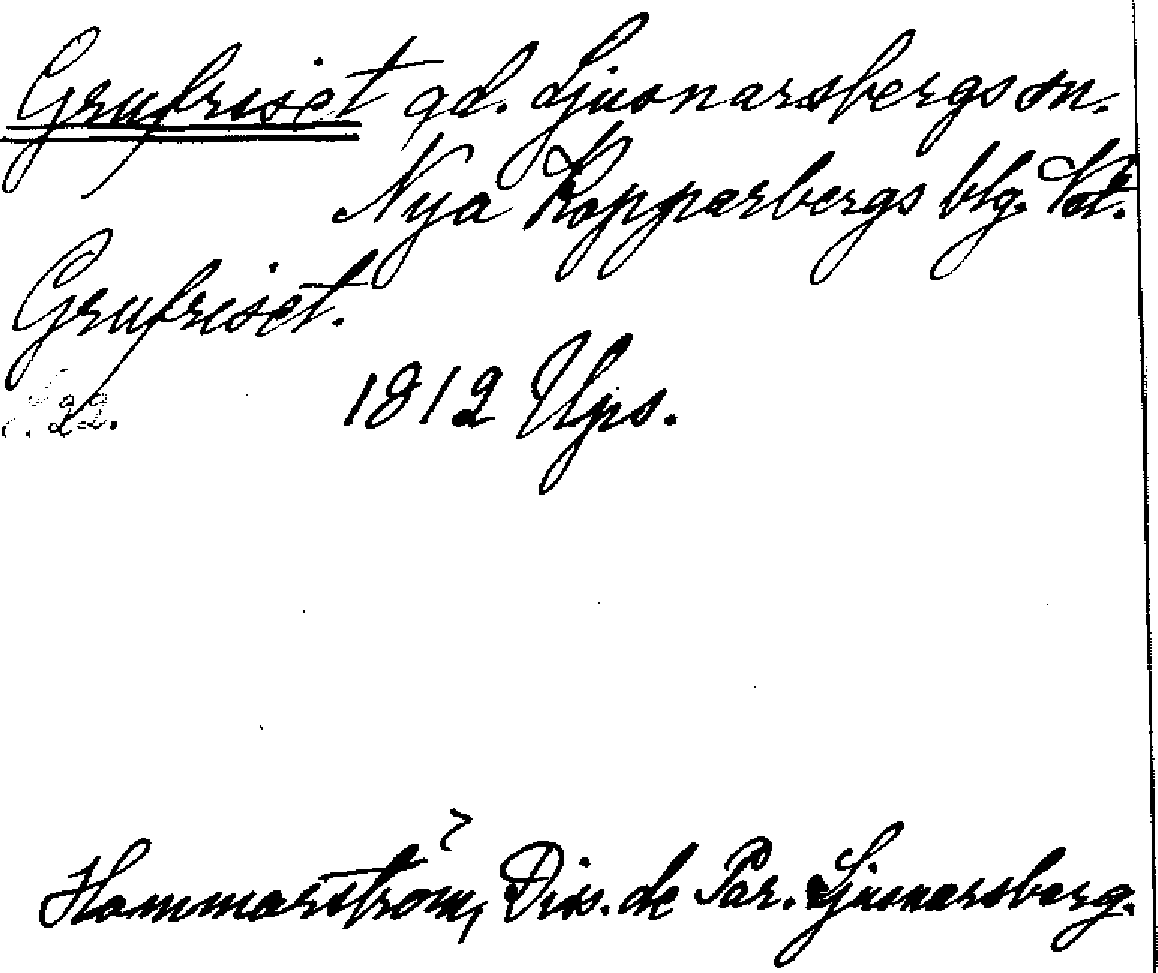 Grufriset gd. Ljusnarsbergs sn.
Nya Kopparbergs blg. Vstm.
Grufriset.
s. 22. 1812 Ups.
Hammarström, Dis. de Par. Ljusnarsberg.